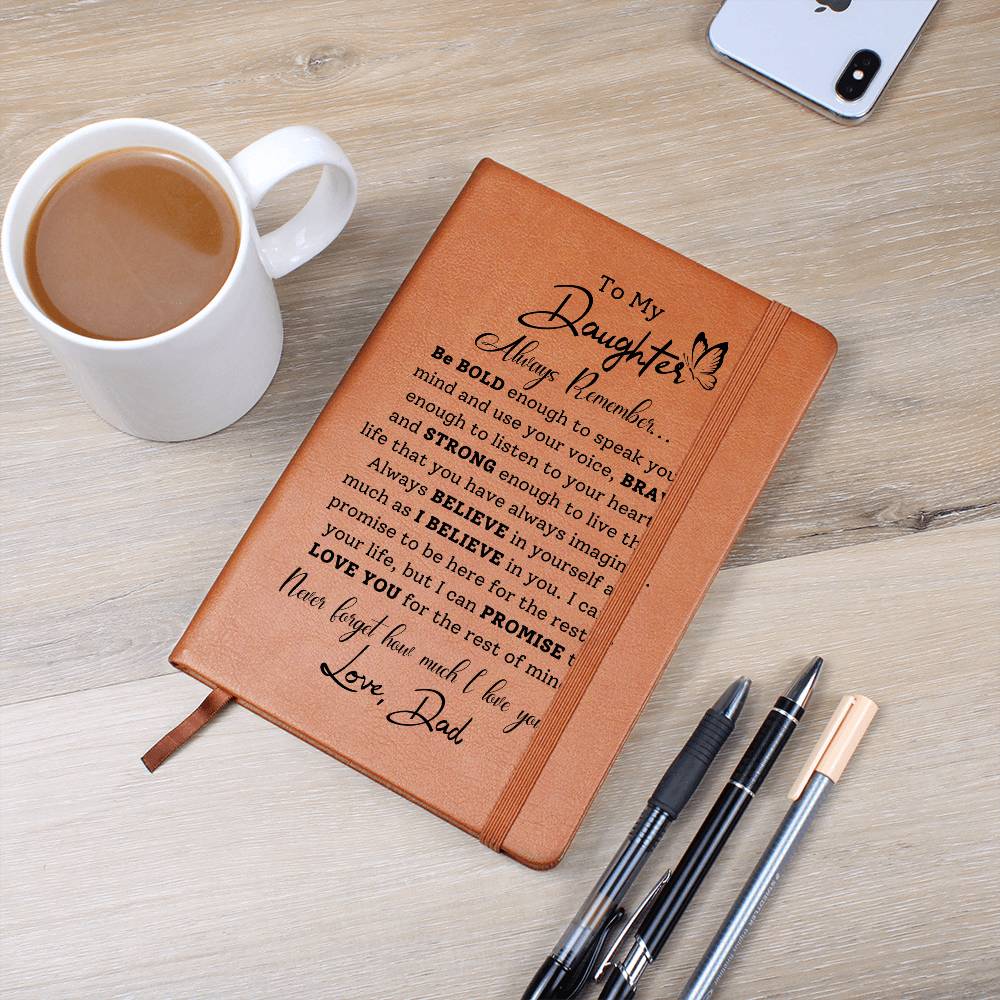 To My
Daughter
Always Remember...
Be BOLD enough to speak you
mind and use your voice, BRA
enough to listen to your heart
and STRONG enough to live th
life that you have always imagin
Always BELIEVE in yourself a
much as I BELIEVE in you. I ca
promise to be here for the rest
your life, but I can PROMISE t
LOVE YOU for the rest of min
Never forget how much I love you
Love, Dad